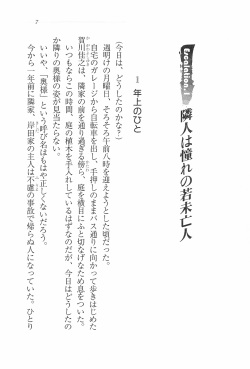 7
Erotation.1
隣人は憧れの若未亡人
1 年上のひと
(今日は、どうしたのかな?)
週明けの月曜日、そろそろ午前八時を迎えようとした頃だった。
自宅のガレージから自転車を出し、手押しのままバス通りに向かって歩きはじめた
賀川佳之は、隣家の前を通り過ぎる傍ら、庭を横目にふと切なげなため息をついた。
いつもならこの時間、庭の植木を手入れしているはずなのだが、今日はどうしたの
か隣りの奥様の姿が見当たらない。
いいや、「奥様」という呼び名はもはや正しくないだろう。
今から一年前に隣家、岸田家の主人は不慮の事故で帰らぬ人になっていた。ひとり